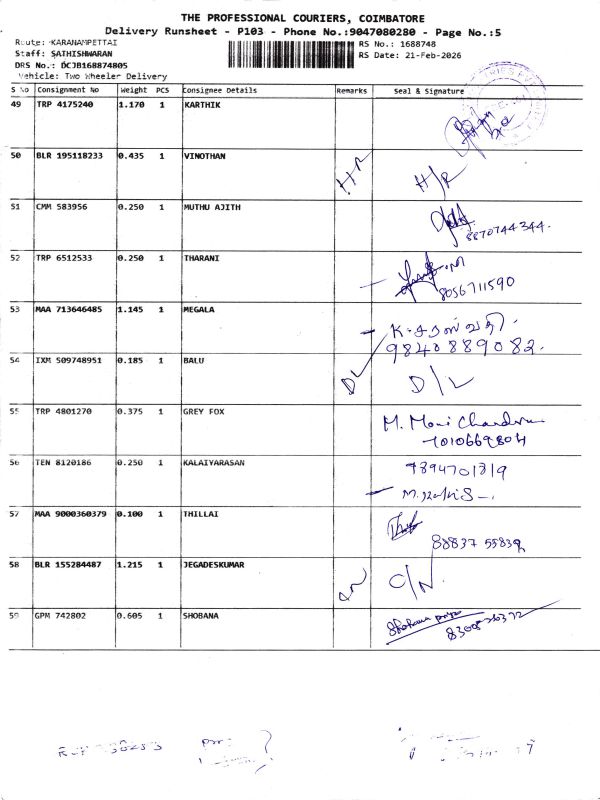 THE PROFESSIONAL COURIERS, COIMBATORE
Delivery Runsheet - P103 - Phone No.:9047080280 - Page No.:5
Route: KARANAMPETTAI
RS No.: 1688748
Staff: SATHISHWARAN
RS Date: 21-Feb-2026
DRS No.: DCJB168874805
Vehicle: Two Wheeler Delivery
S No Consignment No Weight PCS Consignee Details Remarks Seal & Signature
49 TRP 4175240 1.170 1 KARTHIK
50 BLR 195118233 0.435 1 VINOTHAN H/R H/R
51 CMM 583956 0.250 1 MUTHU AJITH
8870744344.
52 TRP 6512533 0.250 1 THARANI
8056711590
53 MAA 713646485 1.145 1 MEGALA K. சரஸ்வதி.
9840889082.
54 IXM 509748951 0.185 1 BALU DL D/L
55 TRP 4801270 0.375 1 GREY FOX M. Moni
56 TEN 8120186 0.250 1 KALAIYARASAN 9894701819
57 MAA 9000360379 0.100 1 THILLAI
58 BLR 155284487 1.215 1 JEGADESKUMAR C/N
59 GPM 742802 0.605 1 SHOBANA Shobana priya